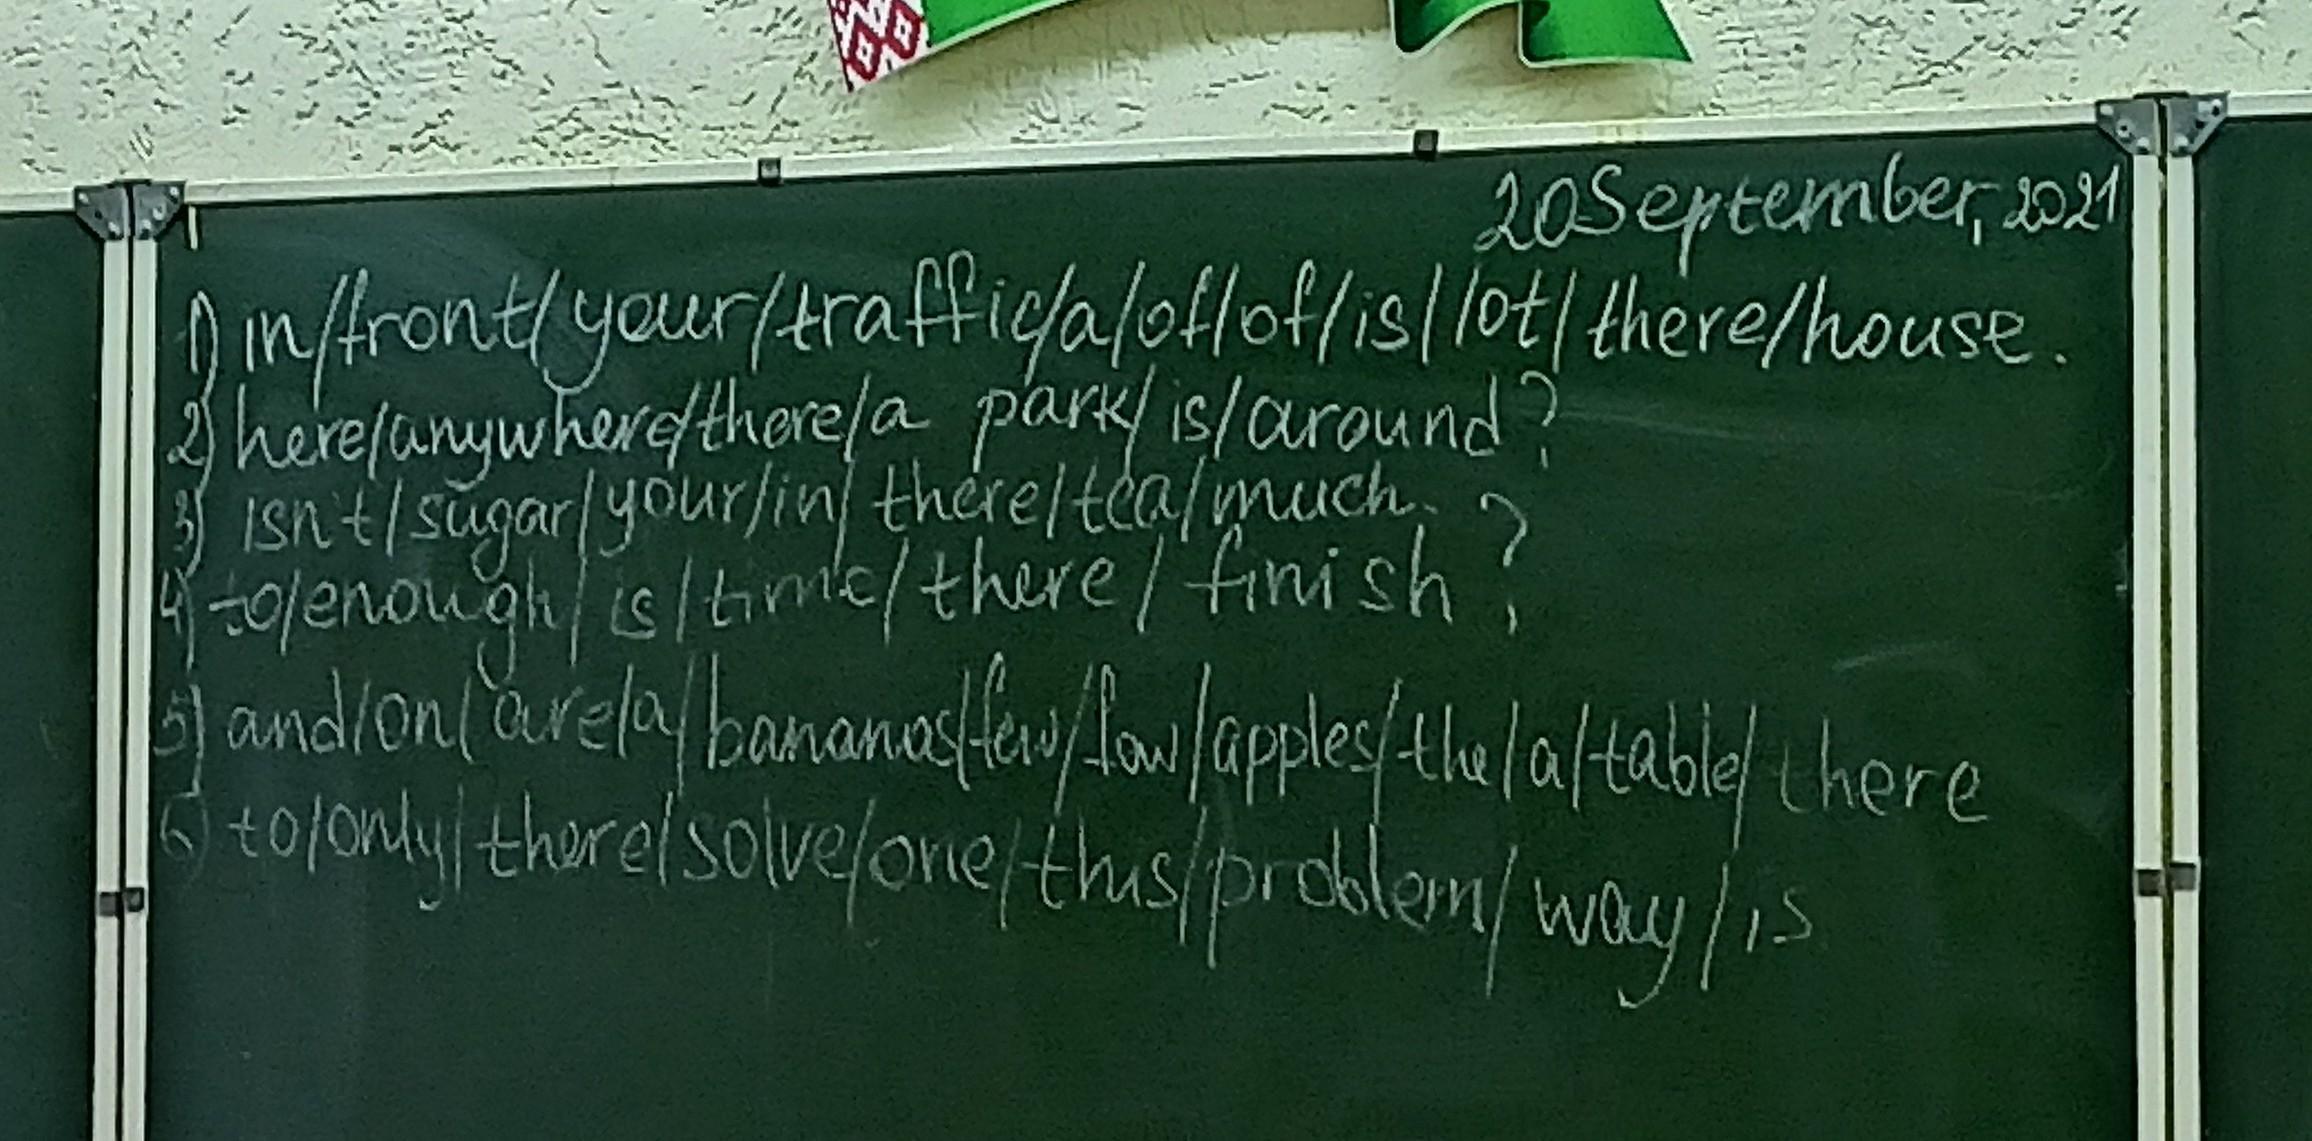 20 September, 2021
1) in/front/your/traffic/a/of/of/is/lot/there/house.
2) here/anywhere/there/a park/is/around?
3) isn't/sugar/your/in/there/tea/much.
4) to/enough/is/time/there/finish?
5) and/on/are/a/bananas/few/few/apples/the/a/table/there
6) to/only/there/solve/one/this/problem/way/is